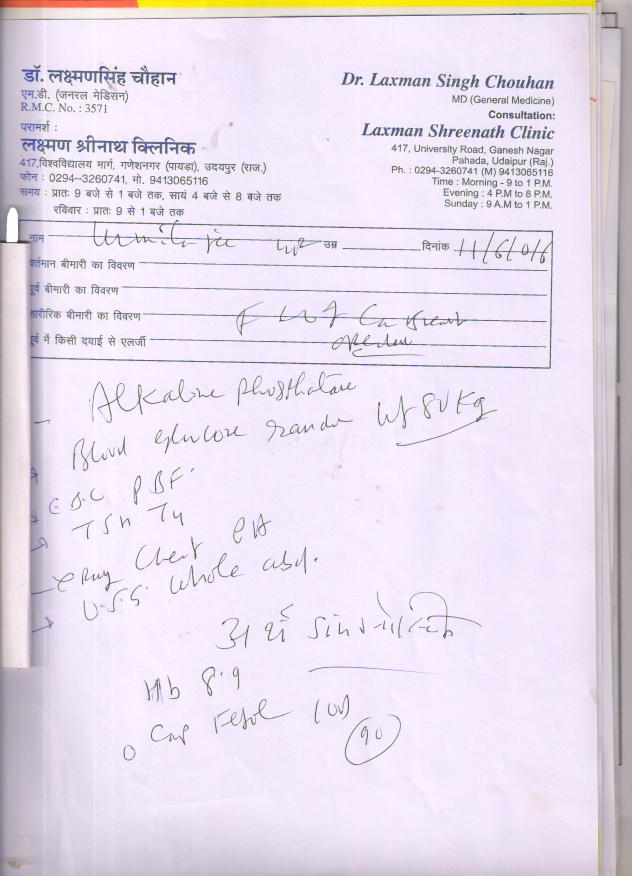 डॉ. लक्ष्मणसिंह चौहान
एम.डी. (जनरल मेडिसन)
R.M.C. No. : 3571
परामर्श :
लक्ष्मण श्रीनाथ क्लिनिक
417,विश्वविद्यालय मार्ग, गणेशनगर (पायड़ा), उदयपुर (राज.)
फोन : 0294-3260741, मो. 9413065116
समय : प्रातः 9 बजे से 1 बजे तक, सायं 4 बजे से 8 बजे तक
रविवार : प्रातः 9 से 1 बजे तक
Dr. Laxman Singh Chouhan
MD (General Medicine)
Consultation:
Laxman Shreenath Clinic
417, University Road, Ganesh Nagar
Pahada, Udaipur (Raj.)
Ph. : 0294-3260741 (M) 9413065116
Time : Morning - 9 to 1 P.M.
Evening : 4 P.M to 8 P.M.
Sunday : 9 A.M to 1 P.M.
नाम उम्र दिनांक
र्तमान बीमारी का विवरण
र्व बीमारी का विवरण
ारीरिक बीमारी का विवरण Ca Breast
र्व में किसी दवाई से एलर्जी
Alkaline Phosphatase
Blood glucose random Wt 80 Kg
PBF
TSH T4
X Ray Chest PA
U.S.G. Whole abd.
Hb 8.9
Cap
90